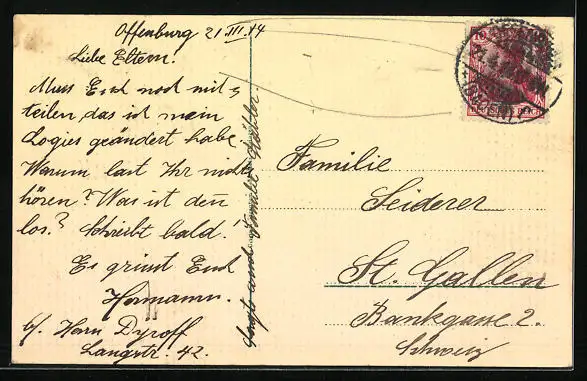 Offenburg 21 III. 14
Liebe Eltern.
Muss Euch noch mit=
teilen, das ich mein
Logies geändert habe.
Warum last Ihr nichts
hören? Was ist den
los? Schreibt bald!
Es grüsst Euch
Hermann.
b/. Herrn Dyroff
Langstr. 42.
Familie
Seiderer
St. Gallen
Bankgasse 2.
Schweiz
10